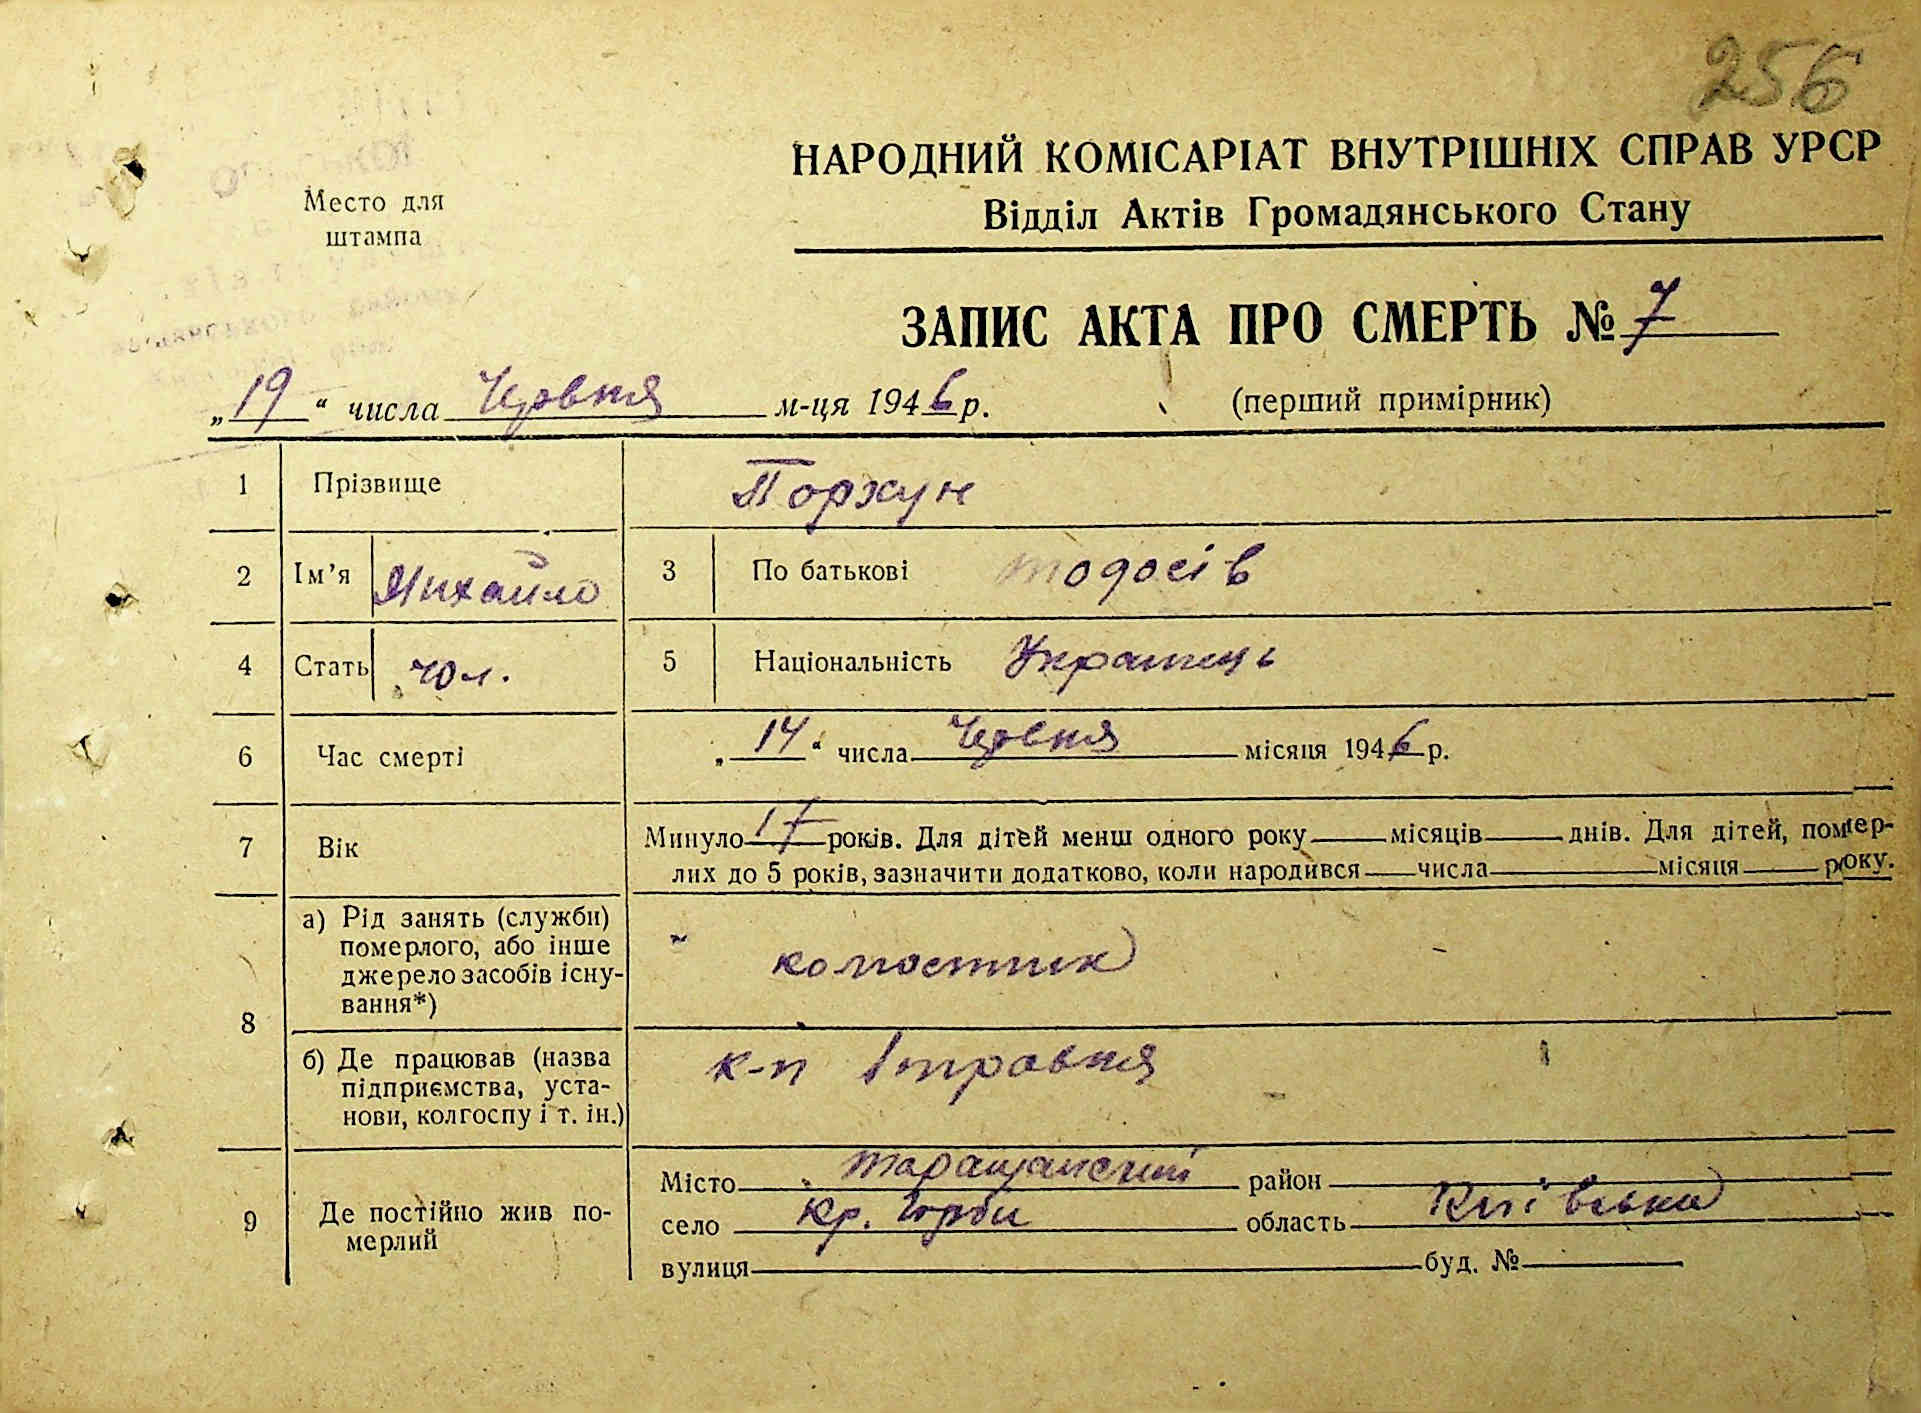 256
НАРОДНИЙ КОМІСАРІАТ ВНУТРІШНІХ СПРАВ УРСР
Відділ Актів Громадянського Стану
Место для
штампа
ЗАПИС АКТА ПРО СМЕРТЬ № 7
„19“ числа Червня м-ця 1946 р.
(перший примірник)
1 Прізвище Порхун
2 Ім’я Михайло 3 По батькові Тодосів
4 Стать чол. 5 Національність Українець
6 Час смерті „14“ числа Червня місяця 1946 р.
7 Вік Минуло 17 років. Для дітей менш одного року місяців днів. Для дітей, помер-
лих до 5 років, зазначити додатково, коли народився числа місяця року.
8 а) Рід занять (служби)
померлого, або інше
джерело засобів існу-
вання*)
колгоспник
б) Де працював (назва
підприємства, уста-
нови, колгоспу і т. ін.)
к-п 1 травня
9 Де постійно жив по-
мерлий
Місто Таращанский район
село Кр. Горби область Київська
вулиця буд. №